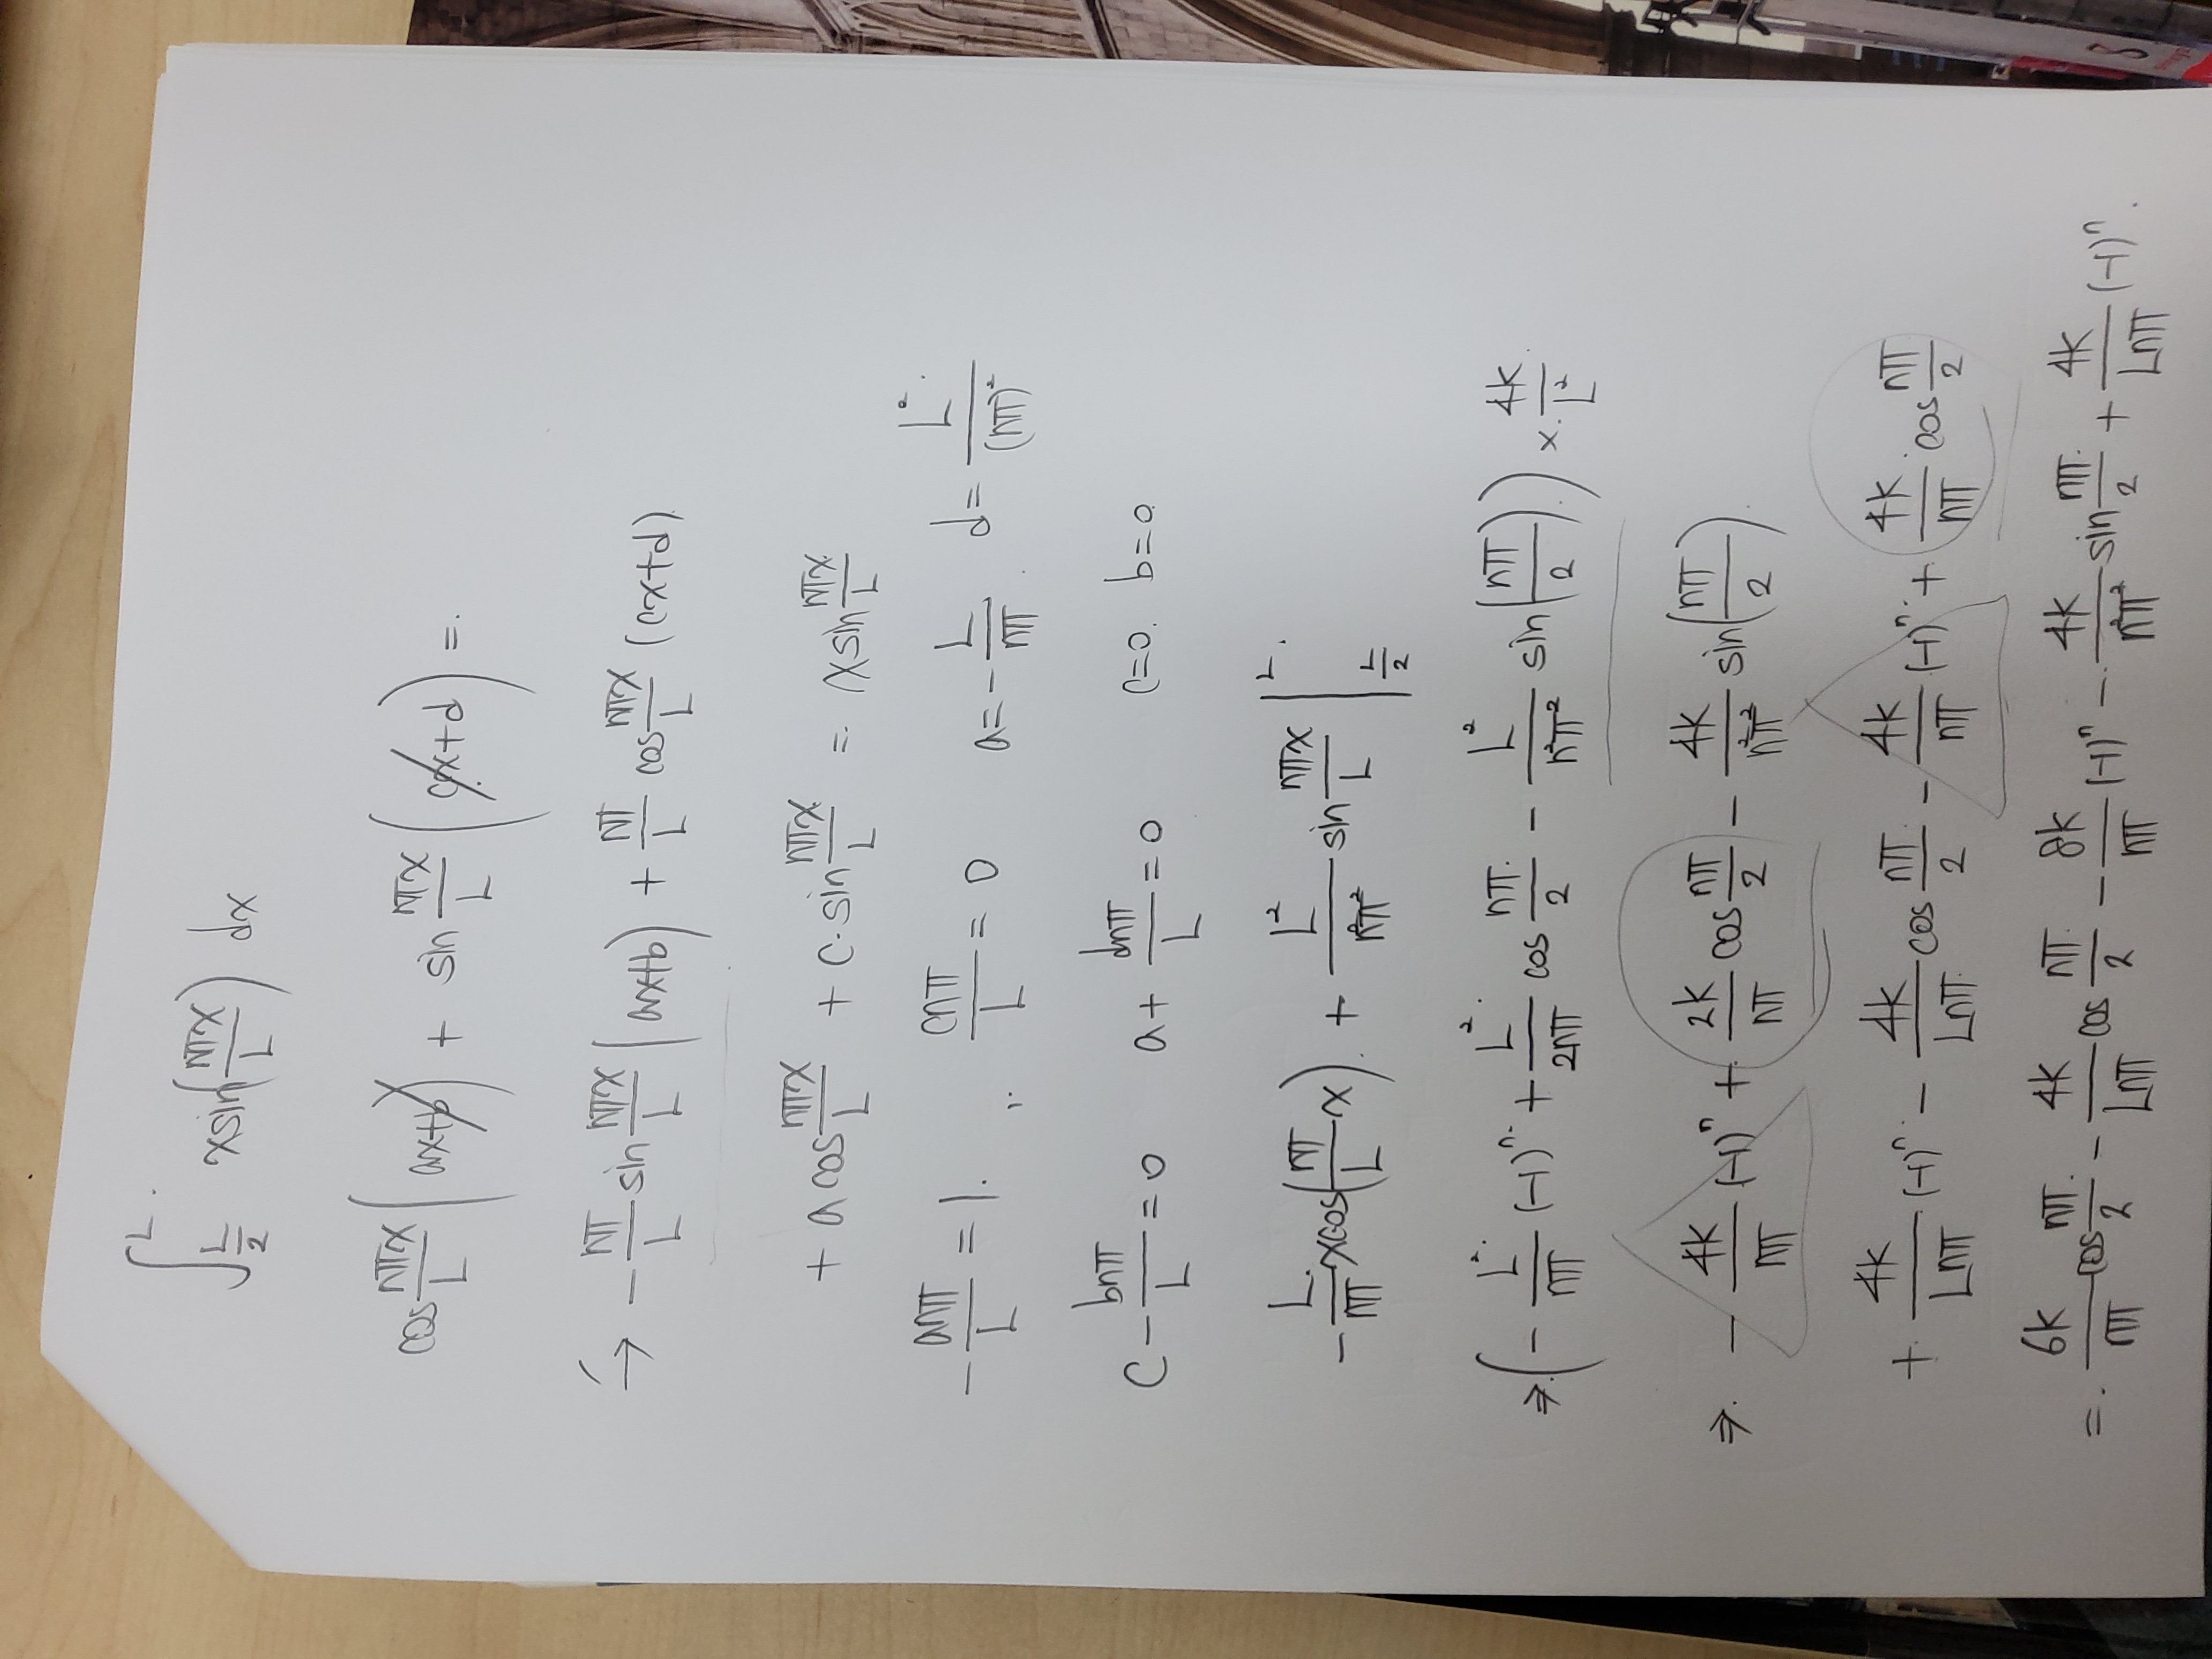 ∫_{L/2}^{L} x sin(nπx/L) dx
cos nπx/L (ax+b) + sin nπx/L (cx+d) =.
→ - nπ/L sin nπx/L (ax+b) + nπ/L cos nπx/L (cx+d)
+ a cos nπx/L + c·sin nπx/L = x sin nπx/L
- anπ/L = 1. ; cnπ/L = 0 a = - L/nπ d = L²/(nπ)²
c - bnπ/L = 0 a + dnπ/L = 0 c=0. b=0.
- L/nπ x cos(nπ/L x) + L²/n²π² sin nπx/L |_{L/2}^{L}
⇒ ( - L²/nπ (-1)ⁿ + L²/2nπ cos nπ/2 - L²/n²π² sin(nπ/2) ) × 4K/L²
⇒ - 4K/nπ (-1)ⁿ + 2K/nπ cos nπ/2 - 4K/n²π² sin(nπ/2)
+ 4K/Lnπ (-1)ⁿ - 4K/Lnπ cos nπ/2 - 4K/nπ (-1)ⁿ + 4K/nπ cos nπ/2
= 6K/nπ cos nπ/2 - 4K/Lnπ cos nπ/2 - 8K/nπ (-1)ⁿ - 4K/n²π² sin nπ/2 + 4K/Lnπ (-1)ⁿ.